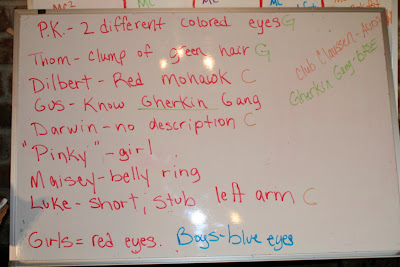 MC²
P.K. - 2 different colored eyes G
Thom - clump of green hair G
Dilbert - Red mohawk C
Gus - Know Gherkin Gang
Darwin - no description C
"Pinky" - girl
Maisey - belly ring
Luke - short, stub left arm C
Girls = red eyes. Boys - blue eyes
Club Claussen -
Gherkin Gang - BASE